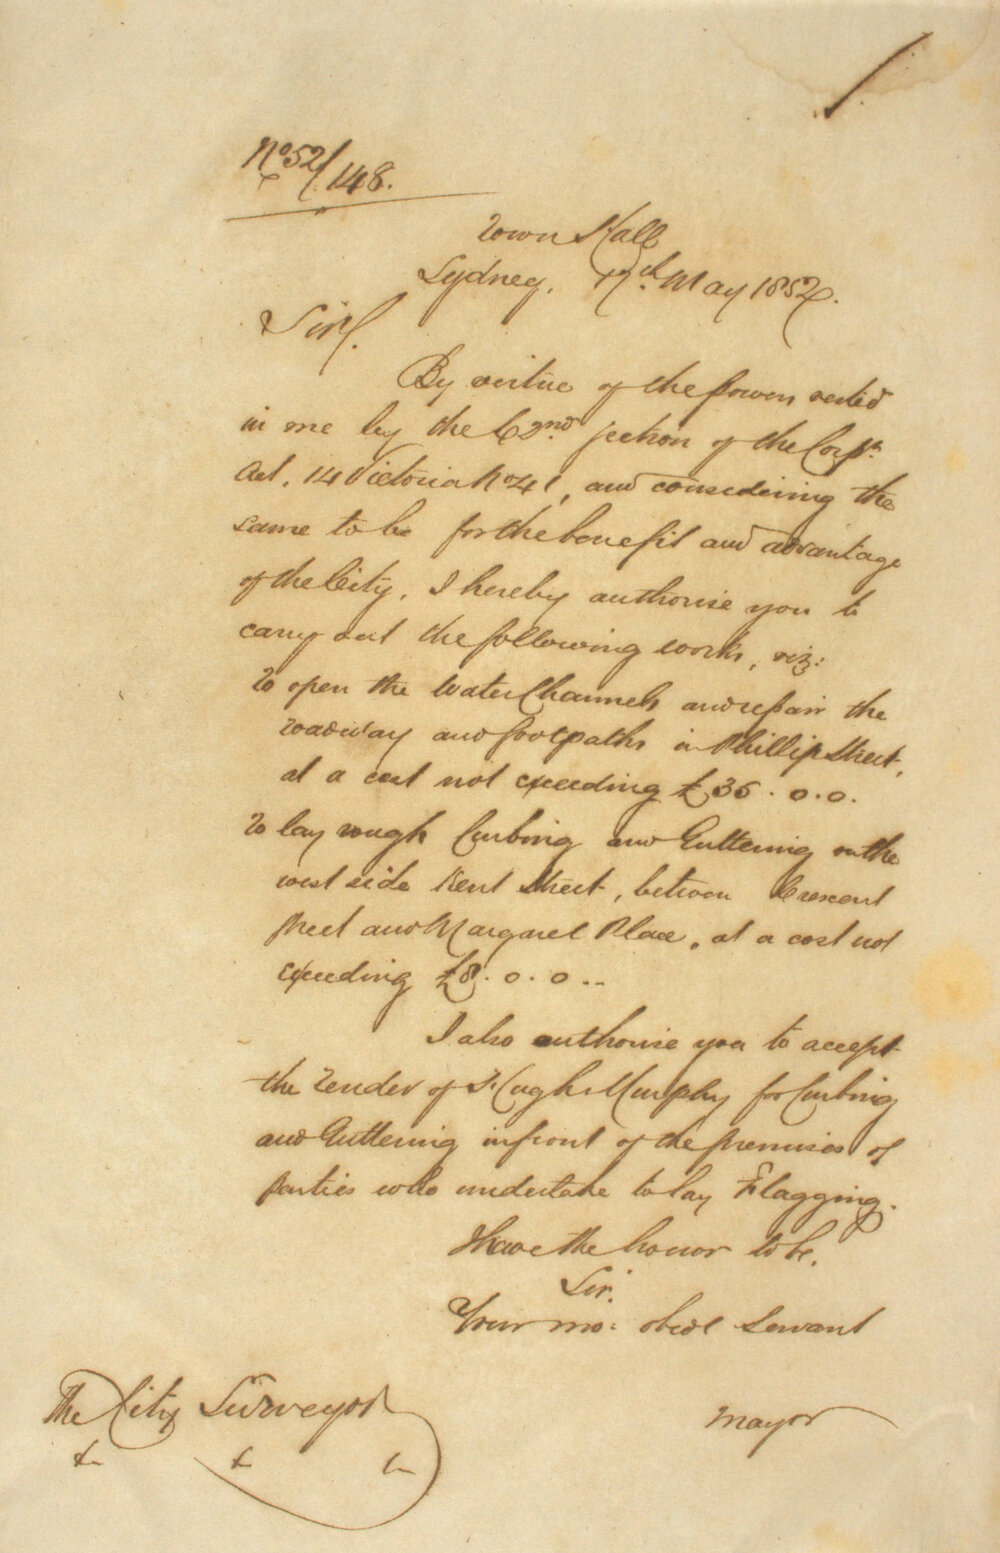 No 52/148.
Town Hall
Sydney, 17th May 1852.
Sir,
By virtue of the powers vested
in me by the 62nd section of the Corpn
Act, 14 Victoria No 41, and considering the
same to be for the benefit and advantage
of the City, I hereby authorise you to
carry out the following works, viz:
To open the Water Channels and repair the
roadway and footpaths in Phillip Street,
at a cost not exceeding £36.0.0.
To lay rough Curbing and Guttering on the
west side Kent Street, between Crescent
Street and Margaret Place, at a cost not
exceeding £8.0.0..
I also authorise you to accept
the Tender of Hugh Murphy for Curbing
and Guttering in front of the premises of
parties who undertake to lay Flagging.
I have the honor to be,
Sir.
Your mo: obedt Servant
Mayor
The City Surveyor
&c &c &c